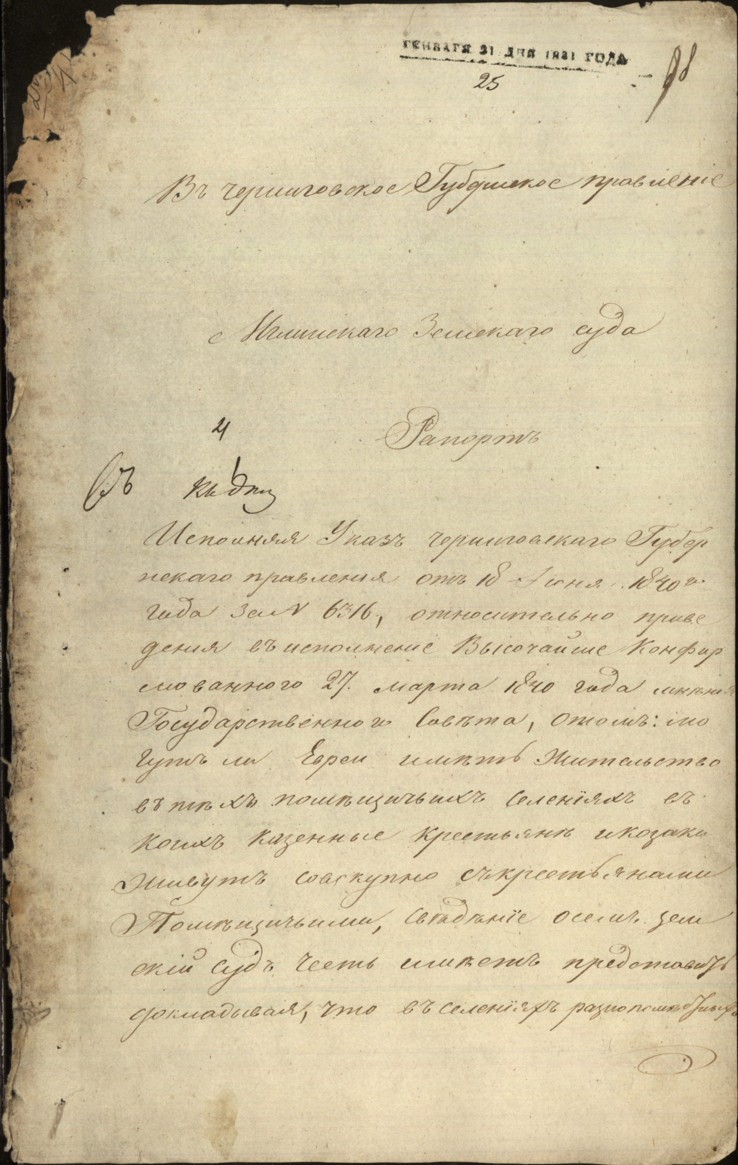 ГЕНВАРЯ 31 ДНЯ 1841 ГОДА
25
Въ черниговское Губернское правленіе
Мглинскаго Земскаго суда
Рапортъ
Исполняя Указъ черниговскаго Губер
нскаго правленія отъ 18 Іюня 1840го
года за № 6316, относительно приве
денія въ исполненіе Высочайше Конфир
мованного 27 марта 1840 года мненія
Государственного Совѣта, отомъ: мо
гутъ ли Евреи имѣть жительство
въ тѣхъ помѣщичьихъ селеніяхъ въ
коихъ казенные крестьяне и козаки
живутъ совокупно съ крестьянами
Помѣщичьими, Свѣденіе осемъ зем
скій Судъ честь имѣетъ представить
докладывая, что въ селеніяхъ разнопомѣстныхъ